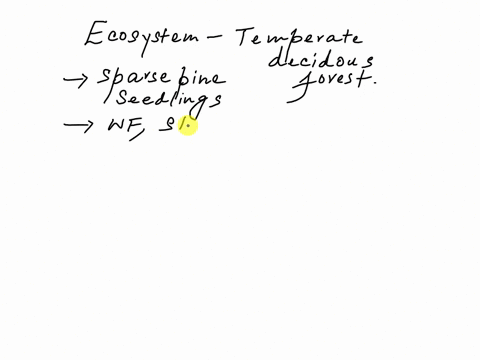 Ecosystem - Temperate
decidous
→ Sparse pine forest.
Seedlings
→ WF, S